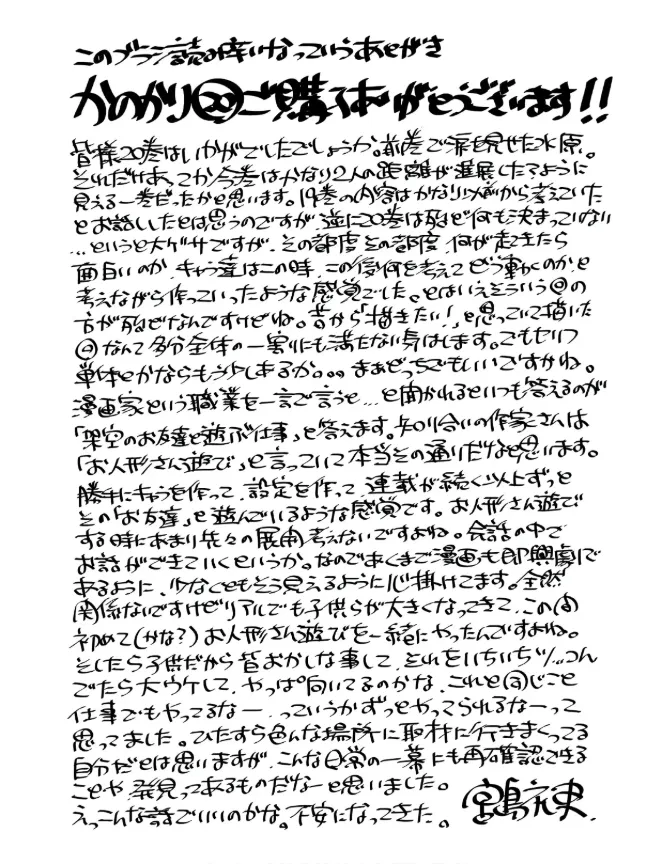 このブラジ読む時いなっていうあとがき
かのかり⑳ご購入ありがとうございます!!
皆様20巻はいかがでしたでしょうか。前巻で涙を見せた水原。
それだけあってか今巻はかなり2人の距離が進展したように
見える一巻だったかと思います。19巻の内容はかなり以前から考えていた
とお話ししたとは思うのですが、逆に20巻は殆ど何も決まっていない
…というと大ゲサですが、その都度その都度、何が起きたら
面白いのか、キャラ達はこの時、この後何を考えてどう動くのか、と
考えながら作っていったような感覚でした。とはいえそういう回の
方が殆どなんですけどね。昔から「描きたい!」と思っていて描いた
回なんて多分全体の一割にも満たない気はします。でもセリフ
単体とかならもう少しあるか。。。まぁどっちでもいいですかね。
漫画家という職業を一言で言うと…と聞かれるといつも答えるのが
「架空のお友達と遊ぶ仕事」と答えます。知り合いの作家さんは
「お人形さん遊び」と言っていて本当その通りだなと思います。
勝手にキャラを作って、設定を作って、連載が続く以上ずっと
その「お友達」と遊んでいるような感覚です。お人形さん遊びで
する時にあまり先々の展開考えないですよね。会話の中で
お話ができていくというか。なのであくまで漫画も即興劇で
あるように、少なくともそう見えるように心掛けてます。全然
関係ないですけどリアルでも子供らが大きくなってきて、この間
初めて(かな?)お人形さん遊びを一緒にやったんですよね。
そしたら子供だから皆おかしな事して、それをいちいちツッコん
でたら大ウケして、やっぱ向いてるのかな、これと同じこと
仕事でもやってるなー、っていうかずっとやってられるなーって
思ってました。ひたすら色んな場所に取材に行きまくってる
自分だとは思いますが、こんな日常の一幕にも再確認できる
ことや、発見ってあるものだなーと思いました。
えっこんな話でいいのかな。不安になってきた。 宮島礼吏.